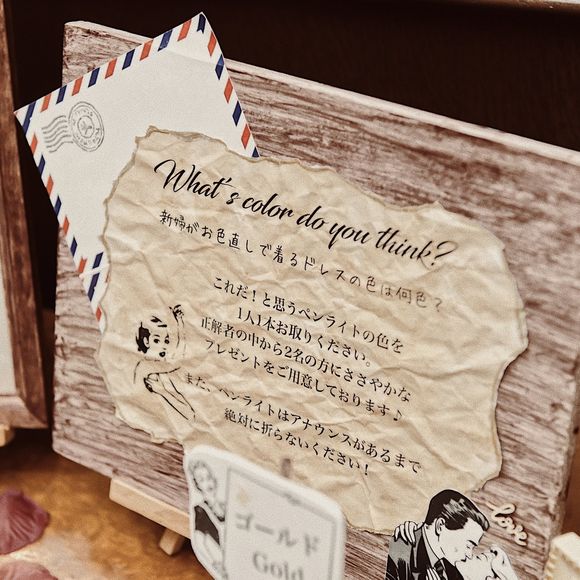 What's color do you think?
新婦がお色直しで着るドレスの色は何色?
これだ!と思うペンライトの色を
1人1本お取りください。
正解者の中から2名の方にささやかな
プレゼントをご用意しております♪
また、ペンライトはアナウンスがあるまで
絶対に折らないください!
love
ゴールド
Gold